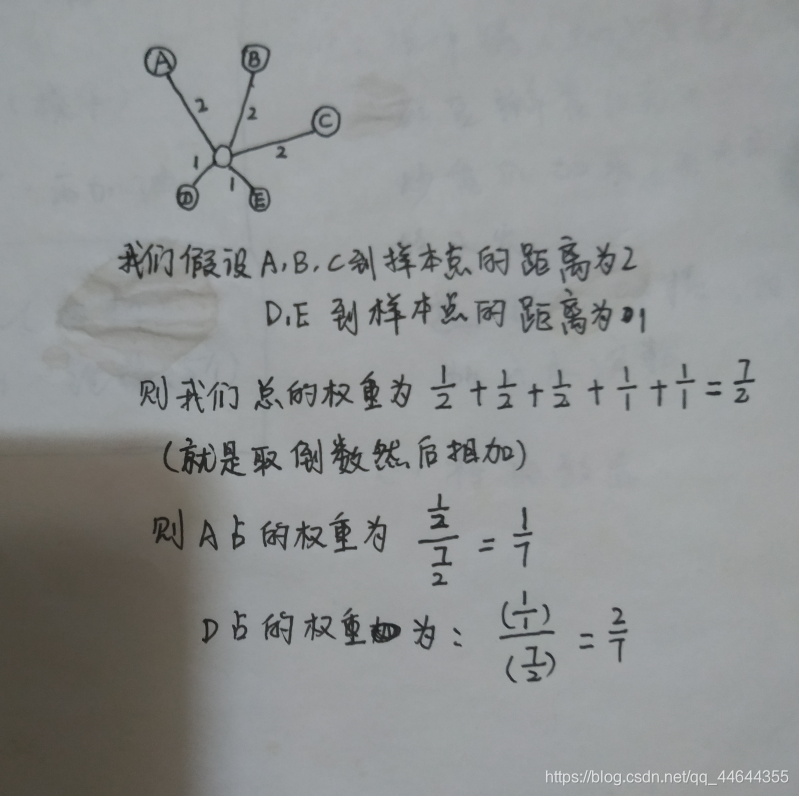 A B C
2 2 2
1 1
D E
我们假设A,B,C到样本点的距离为2
D,E 到样本点的距离为1
则我们总的权重为 1/2 + 1/2 + 1/2 + 1/1 + 1/1 = 7/2
(就是取倒数然后相加)
则A占的权重为 (1/2)/(7/2) = 1/7
D占的权重为: (1/1)/(7/2) = 2/7
https://blog.csdn.net/qq_44644355